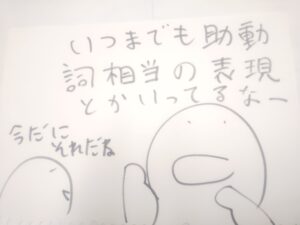 いつまでも助動
詞相当の表現
とかいってるなー
今だに
それだね